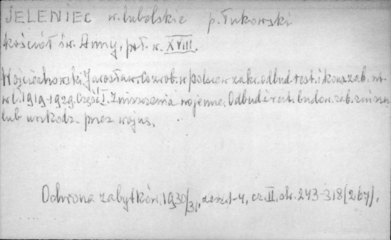 JELENIEC w. lubelskie p. Łukowski
Kościół św. Anny, poł. w. XVIII.
Wojciechowski Jarosław. Co zrob. w polsce w zakr. odbud. rest. i kons. zab. nt.
w l. 1919-1929. Część I. Zniszczenia wojenne. Odbud. i rest. budow. zab. zniszcz.
lub uszkodz. przez wojnę.
Ochrona zabytków, 1930/31, zesz. 1-4, cz. II, str. 243-318 (267).